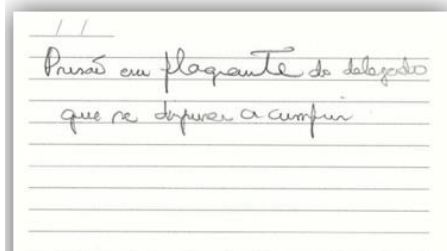 Prisão em flagrante do delegado
que se a cumprir